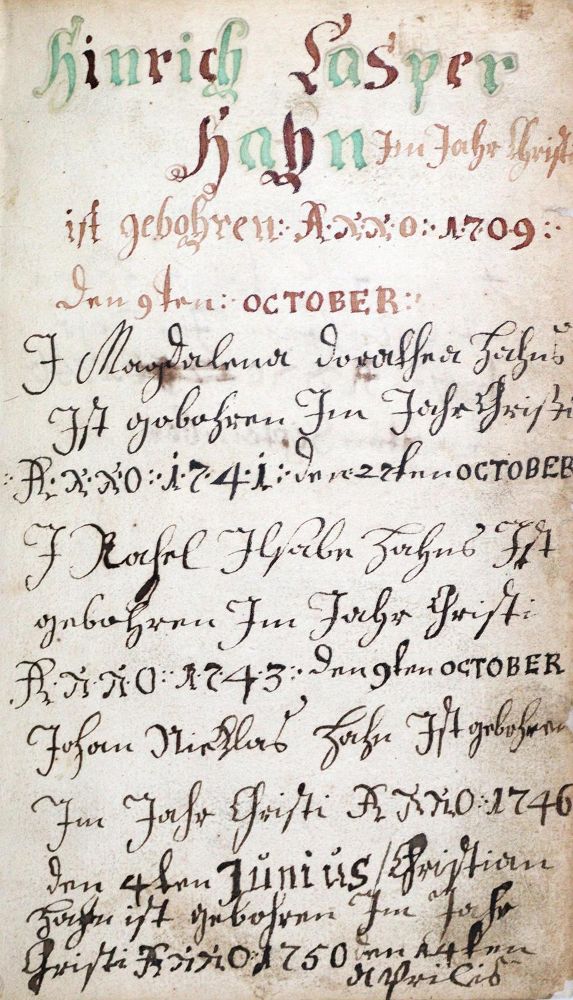 Hinrich Casper
Hahn Im Jahr Christi
ist gebohren: ANNO: 1709:
den 9ten: OCTOBER:
J Magdalena dorathea Hahns
Ist gebohren Im Jahr Christi
:ANNO: 1741: den 27ten OCTOBER
J Rahel Ilsabe Hahns Ist
gebohren Im Jahr Christi
ANNO: 1743: den 9ten OCTOBER
Johan Nicklas Hahn Ist gebohren
Im Jahr Christi ANNO: 1746
den 4ten Junius / Christian
Hahn ist gebohren Im Jahr
Christi ANNO: 1750 den 14ten
Aprilis